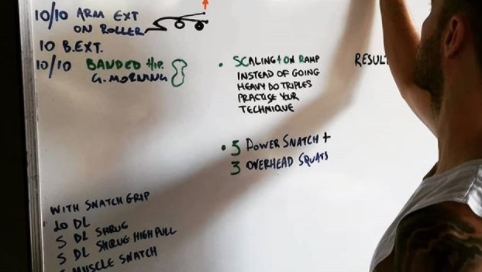 10/10 ARM EXT
ON ROLLER
10 B.EXT.
10/10 BANDED HIP.
G. MORNANG
WITH SNATCH GRIP
10 DL
5 DL SHRUG
5 DL SHRUG HIGH PULL
5 MUSCLE SNATCH
• SCALING + ON RAMP
INSTEAD OF GOING
HEAVY DO TRIPLES
PRACTISE YOUR
TECHNIQUE
• 5 POWER SNATCH +
3 OVERHEAD SQUATS
RESULT